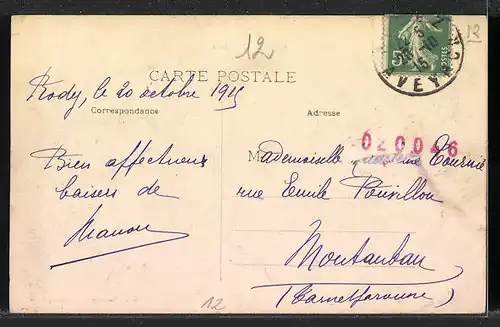 12
12
CARTE POSTALE
Rodez, le 20 octobre 1915
Correspondance
Bien affectueux
baisers de
Manon
12
Adresse
020046
Mademoiselle Tournié
rue Emile Pouvillon
Montauban
(Tarn et Garonne)
5c
POSTES
AVEYRON